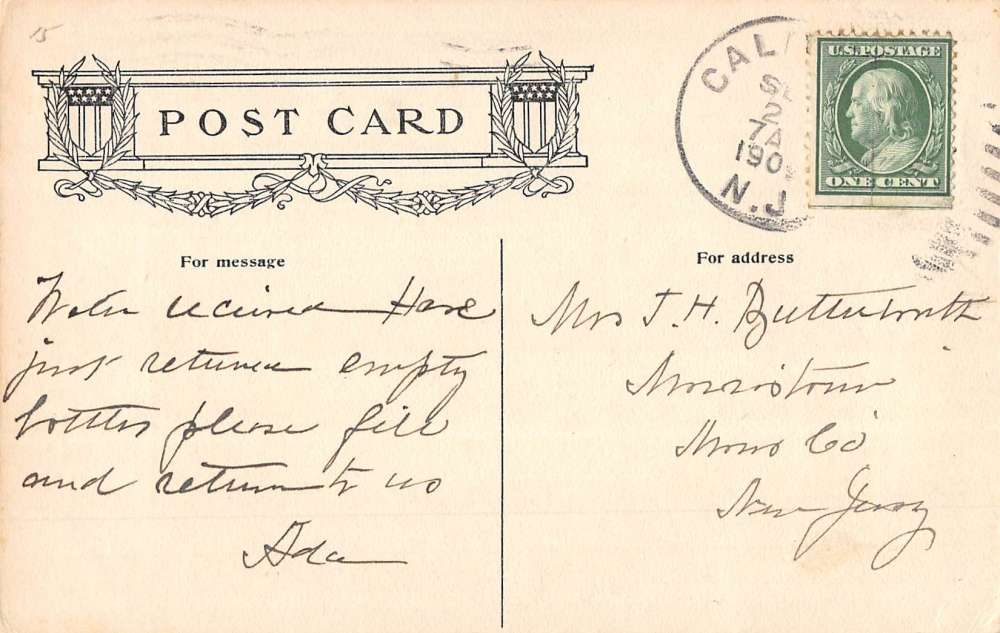 15
POST CARD
CAL
SE
2
7A
190
N.J
U.S. POSTAGE
ONE CENT
For message
For address
Water received Have
just returned empty
bottles please fill
and return to us
Ada
Mrs J. H. Butterworth
Morristown
Morris Co
New Jersey